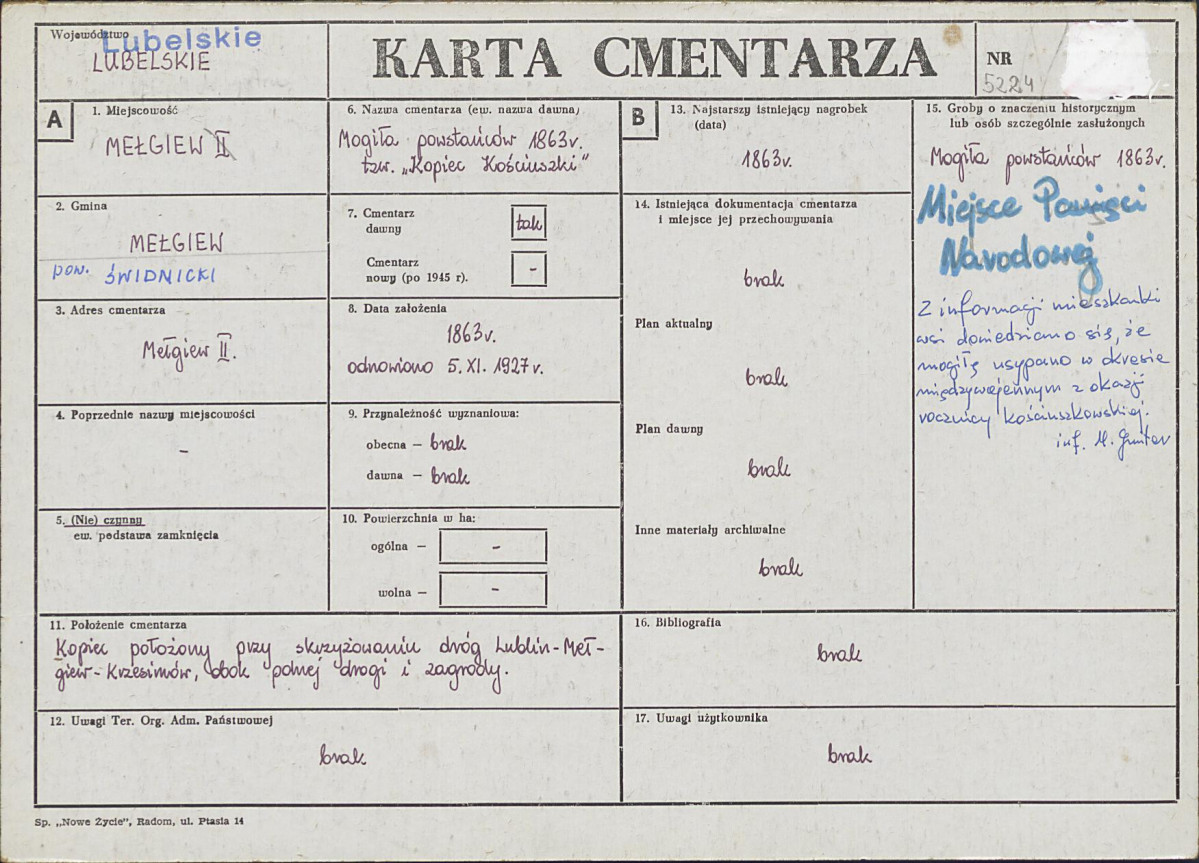 Województwo
Lubelskie
LUBELSKIE
KARTA CMENTARZA
NR
5224
A
1. Miejscowość
MEŁGIEW II
2. Gmina
MEŁGIEW
pow. ŚWIDNICKI
3. Adres cmentarza
Mełgiew II.
4. Poprzednie nazwy miejscowości
–
5. (Nie) czynny
ew. podstawa zamknięcia
6. Nazwa cmentarza (ew. nazwa dawna)
Mogiła powstańców 1863r.
tzw. „Kopiec Kościuszki"
7. Cmentarz
dawny
tak
Cmentarz
nowy (po 1945 r).
-
8. Data założenia
1863r.
odnowiono 5. XI. 1927r.
9. Przynależność wyznaniowa:
obecna – brak
dawna – brak
10. Powierzchnia w ha:
ogólna – -
wolna – -
B
13. Najstarszy istniejący nagrobek
(data)
1863r.
14. Istniejąca dokumentacja cmentarza
i miejsce jej przechowywania
brak
Plan aktualny
brak
Plan dawny
brak
Inne materiały archiwalne
brak
15. Groby o znaczeniu historycznym
lub osób szczególnie zasłużonych
Mogiła powstańców 1863r.
Miejsce Pamięci
Narodowej
Z informacji mieszkanki
wsi dowiedziano się, że
mogiłę usypano w okresie
międzywojennym z okazji
rocznicy kościuszkowskiej.
inf. M.
11. Położenie cmentarza
Kopiec położony przy skrzyżowaniu dróg Lublin-Meł-
giew-Krzesimów, obok polnej drogi i zagrody.
12. Uwagi Ter. Org. Adm. Państwowej
brak
16. Bibliografia
brak
17. Uwagi użytkownika
brak
Sp. „Nowe Życie", Radom, ul. Ptasia 14